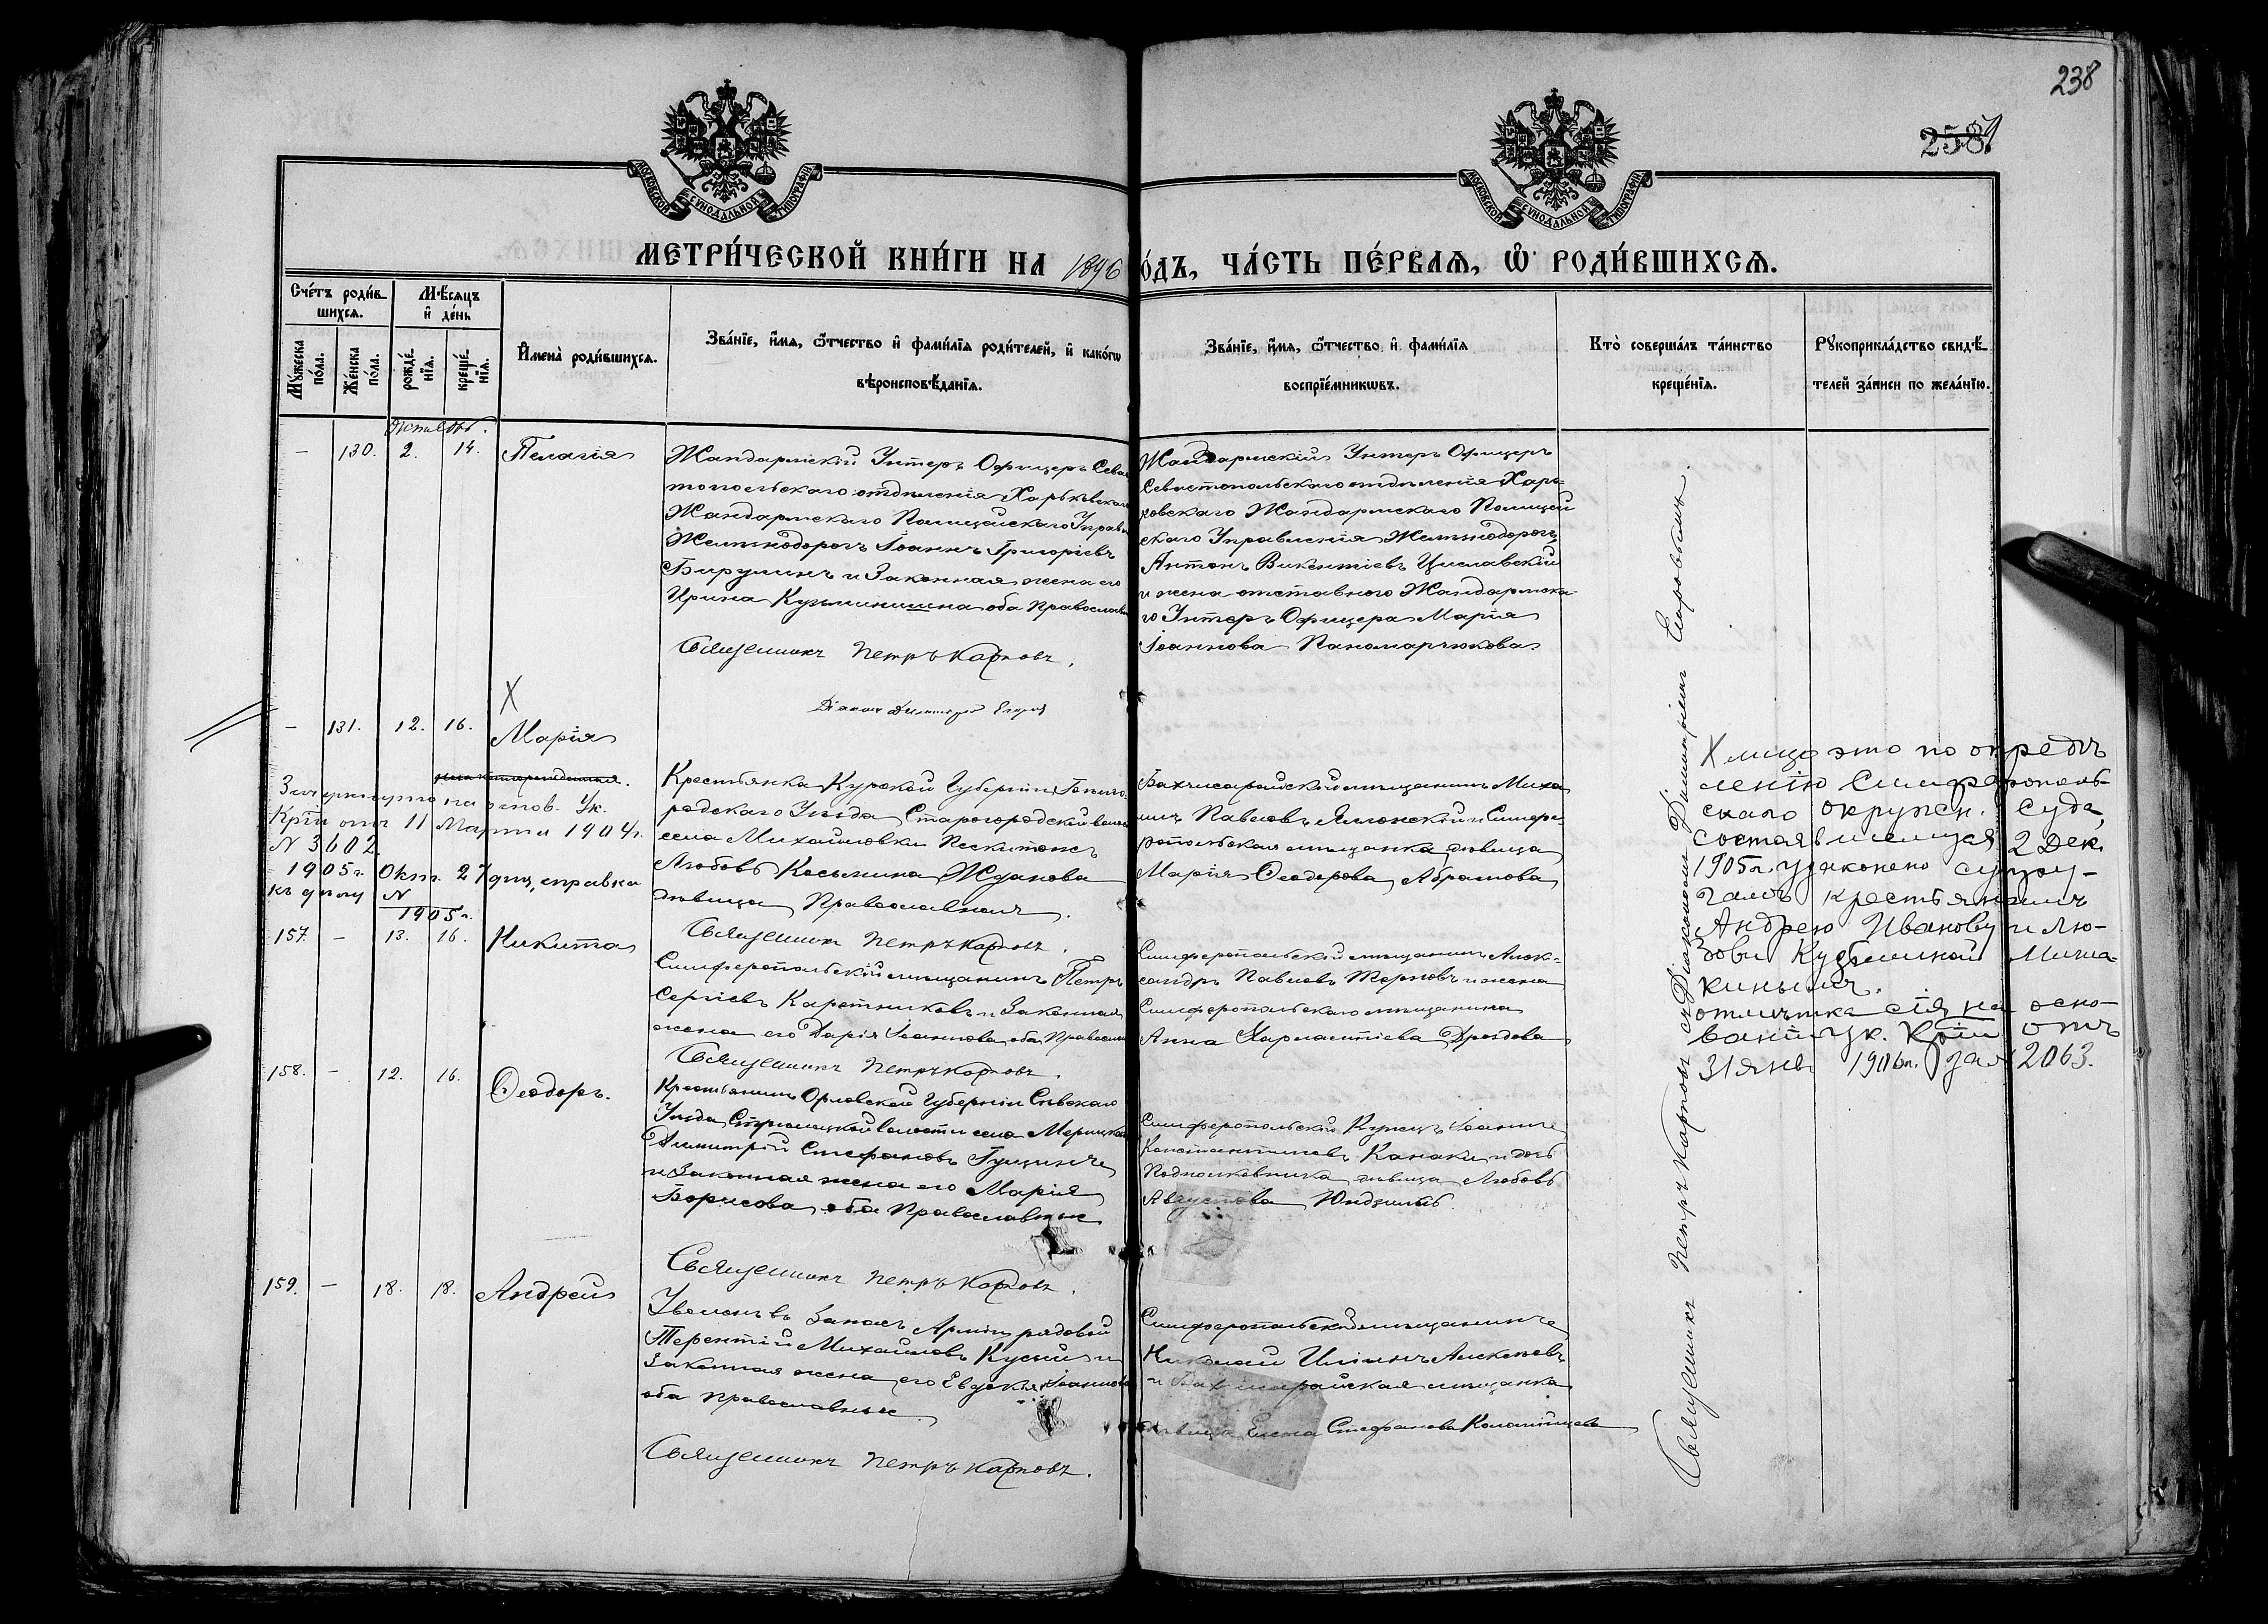 238
258
МОСКОВСКОЙ СѴНОДАЛЬНОЙ ТИПОГРАФІИ
МОСКОВСКОЙ СѴНОДАЛЬНОЙ ТИПОГРАФІИ
МЕТРИ́ЧЕСКОЙ КНИ́ГИ НА 1896
О́ДЪ, ЧА́СТЬ ПЕ́РВАЯ, Ѿ РОДИ́ВШИХСЯ.
Сче́тъ роди́в-
шихся.
Му́жеска по́ла.
Же́нска по́ла.
Мѣ́сяцъ
и де́нь
рожде́нїя.
креще́нїя.
Имена̀ роди́вшихся.
Зва́нїе, и́мя, о́тчество и фами́лїя роди́телей, и како́гѡ
вѣроисповѣ́данїя.
Зва́нїе, и́мя, о́тчество и фами́лїя
воспрїе́мникѡвъ.
Кто̀ соверша́лъ та́инство
креще́нїя.
Рꙋкоприкла́дство свидѣ́-
телей за́писи по жела́нїю.
Октябрь.
— 130. 2. 14. Пелагія
Жандармскій Унтеръ Офицеръ Сева
топольскаго отдѣленія Харьковскаго
Жандармскаго Полицейскаго Управл
Желѣзнодорогъ Іоаннъ Григоріевъ
Бирулинъ и Законная жена его
Ирина Кузьминишна оба Православн
Священникъ Петръ Карповъ.
Діаконъ Димитрій
Жандармскій Унтеръ Офицеръ
Севастопольскаго отдѣленія Харь-
ковскаго Жандармскаго Полицей
скаго Управленія Желѣзнодорогъ
Антонъ Викентіевъ Циславскій
и жена отставного Жандармска-
го Унтеръ Офицера Марія
Іоаннова Паномарчюкова
Х
— 131. 12. 16. Марія
незаконнорожденная.
Зачеркнуто на основ. Ук.
Крїи отъ 11 Марта 1904 г.
N 3602
1905 г. Окт. 27 дня, справка
къ дѣлу N
1905 г.
Крестьянка Курской Губерніи Бѣлго-
родскаго Уѣзда Старогородской волост
села Михайловки
Любовь Косьмина Жданова
дѣвица Православная.
Священникъ Петръ Карповъ.
Бахчисарайскій мѣщанинъ Миха
илъ Павловъ и Симфе-
ропольская мѣщанка дѣвица
Марія Ѳеодорова Абрамова
Х лицо это по опредѣ
ленію Симферополь-
скаго окружн. Суда,
состоявшемуся 2 Дек.
1905 г. узаконено супру-
гамъ крестьянамъ
Андрею Иванову и Лю-
бови Кузьминой Мина-
кинымъ.
отмѣтка сія на осно-
ваніи ук. Крїи отъ
31 янв. 1906 г. за N 2063.
157. — 13. 16. Никита
Симферопольскій мѣщанинъ Петръ
Сергіевъ Каретниковъ и Законная
жена его Дарія Іоаннова оба Правосла
Священникъ Петръ Карповъ.
Симферопольскій мѣщанинъ Алек-
сандръ Павловъ Жерновъ и жена
Симферопольскаго мѣщанина
Анна Харлампіева Дроздова
158. — 12. 16. Ѳеодоръ.
Крестьянинъ Орловской Губерніи Сѣвскаго
Уѣзда волости села
Димитрій Стефановъ Гущинъ
и Законная жена его Марія
Борисова оба Православные
Священникъ Петръ Карповъ.
Симферопольскій Купецъ Іоаннъ
Константиновъ Канаки и дочь
Подполковника дѣвица Любовь
Августова Юндзилъ.
159. — 18. 18. Андрей
Уволенъ въ Запасъ Арміи рядовой
Терентій Михайловъ Кусый и
Законная жена его Евдокія Іоаннова
оба православные.
Священникъ Петръ Карповъ.
Симферопольскій мѣщанинъ
Николай Ильинъ
и Бахчисарайская мѣщанка
дѣвица Елена Стефанова
Священникъ Петръ Карповъ съ Діакономъ Димитріемъ